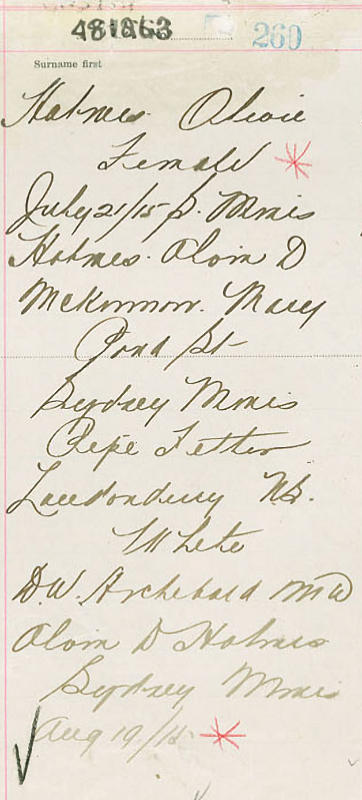 481863
260
Surname first
Holmes Olivie
Female
July 21/15 S. Mines
Holmes. Alvin D
McKinnon. Mary
Pond St
Sydney Mines
Pipe Fetter
Londonderry N.S.
White
D.W. Archibald MD
Alvin D Holmes
Sydney Mines
Aug 19/15